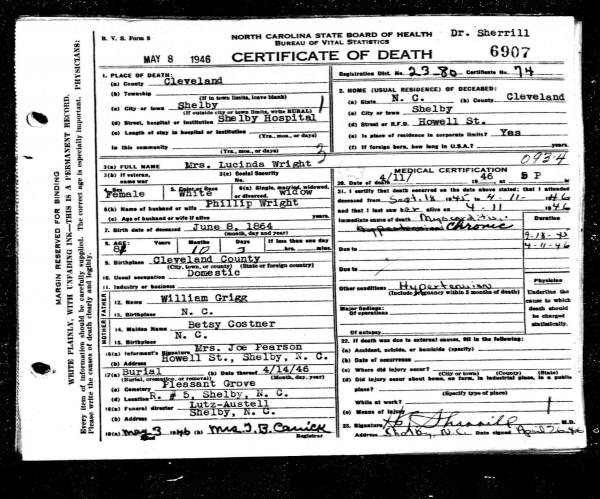 R. V. S. Form 8
NORTH CAROLINA STATE BOARD OF HEALTH
BUREAU OF VITAL STATISTICS
Dr. Sherrill
MAY 8 1946
CERTIFICATE OF DEATH
6907
Registration Dist. No. 23-80 Certificate No. 74
1. PLACE OF DEATH:
(a) County Cleveland
(b) Township
(If in town limits, leave blank)
(c) City or town Shelby
(If outside city or town limits, write RURAL)
(d) Street, hospital or institution Shelby Hospital
(e) Length of stay in hospital or institution
(Yrs., mos., or days)
In this community
(Yrs., mos., or days)
2. HOME (USUAL RESIDENCE) OF DECEASED:
(a) State N. C. (b) County Cleveland
(c) City or town Shelby
(d) Street or R.F.D. Howell St.
(e) Is place of residence in corporate limits? Yes
(f) If foreign born, how long in U.S.A.? years
0934
3(a) FULL NAME Mrs. Lucinda Wright
3(b) If veteran, name war
3(c) Social Security No.
4. Sex Female
5. Color or Race White
6(a) Single, married, widowed, or divorced. widow
6(b) Name of husband or wife Phillip Wright
(c) Age of husband or wife if alive
7. Date of deceased June 8, 1864
(month, day and year)
8. AGE: Years 81 Months 10 Days 3 If less than one day hrs. min.
9. Birthplace Cleveland County
(City, town, or county) (State or foreign country)
10. Usual occupation Domestic
11. Industry or business
FATHER
12. Name William Grigg
13. Birthplace N. C.
MOTHER
14. Maiden Name Betsy Costner
15. Birthplace N. C.
16(a) Informant's Signature Mrs. Joe Pearson
(b) Address Howell St., Shelby, N. C.
17(a) Burial (b) Date thereof 4/14/46
(Burial, cremation, or removal) (Month, day, year)
(c) Cemetery Pleasant Grove
(d) Location R. # 5, Shelby, N. C.
18(a) Funeral director Lutz-Austell
Shelby, N. C.
19(a) May 3 1946 (b) Mrs. J. B. Carrick
Registrar
MEDICAL CERTIFICATION
20. Date of death 4/11/ 1946 5 P
21. I certify that death occurred on the above stated date; that I attended
deceased from Sept. 18 1945 to 4-11- 1946
and that I last saw her alive on 4-11 1946
Immediate cause of death Myocarditis
Hypertension Chronic
Duration
9-18-45
4-11-46
Due to
Due to
Other conditions: Hypertension
(Include pregnancy within 3 months of death)
Major findings:
Of operations
Of autopsy
Physician
Underline the cause to which death should be charged statistically.
22. If death was due to external causes, fill in the following:
(a) Accident, suicide, or homicide (specify)
(b) Date of occurrence
(c) Where did injury occur? (City) (County) (State)
(d) Did injury occur about home, on farm, in industrial place, in a public place?
(Specify type of place)
While at work?
(e) Means of injury
23. Signature Sherrill M.D.
Address Shelby, N.C. Date signed April 26-46
MARGIN RESERVED FOR BINDING
WRITE PLAINLY, WITH UNFADING INK—THIS IS A PERMANENT RECORD.
Every item of information should be carefully supplied. The correct age is especially important. PHYSICIANS:
Please write the causes of death clearly and legibly.